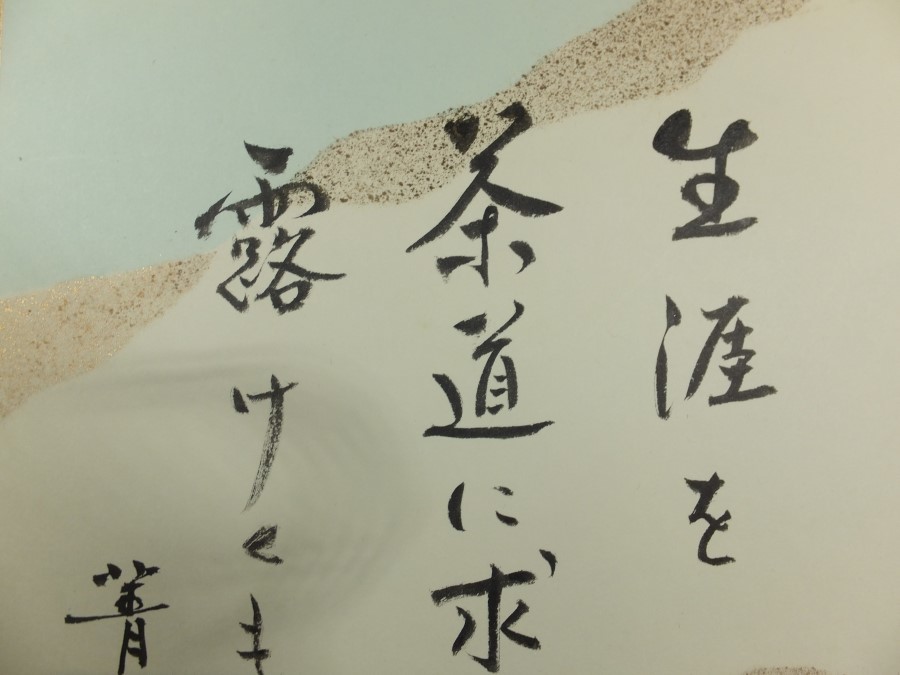 生涯を
茶道に求
露けくも
菁